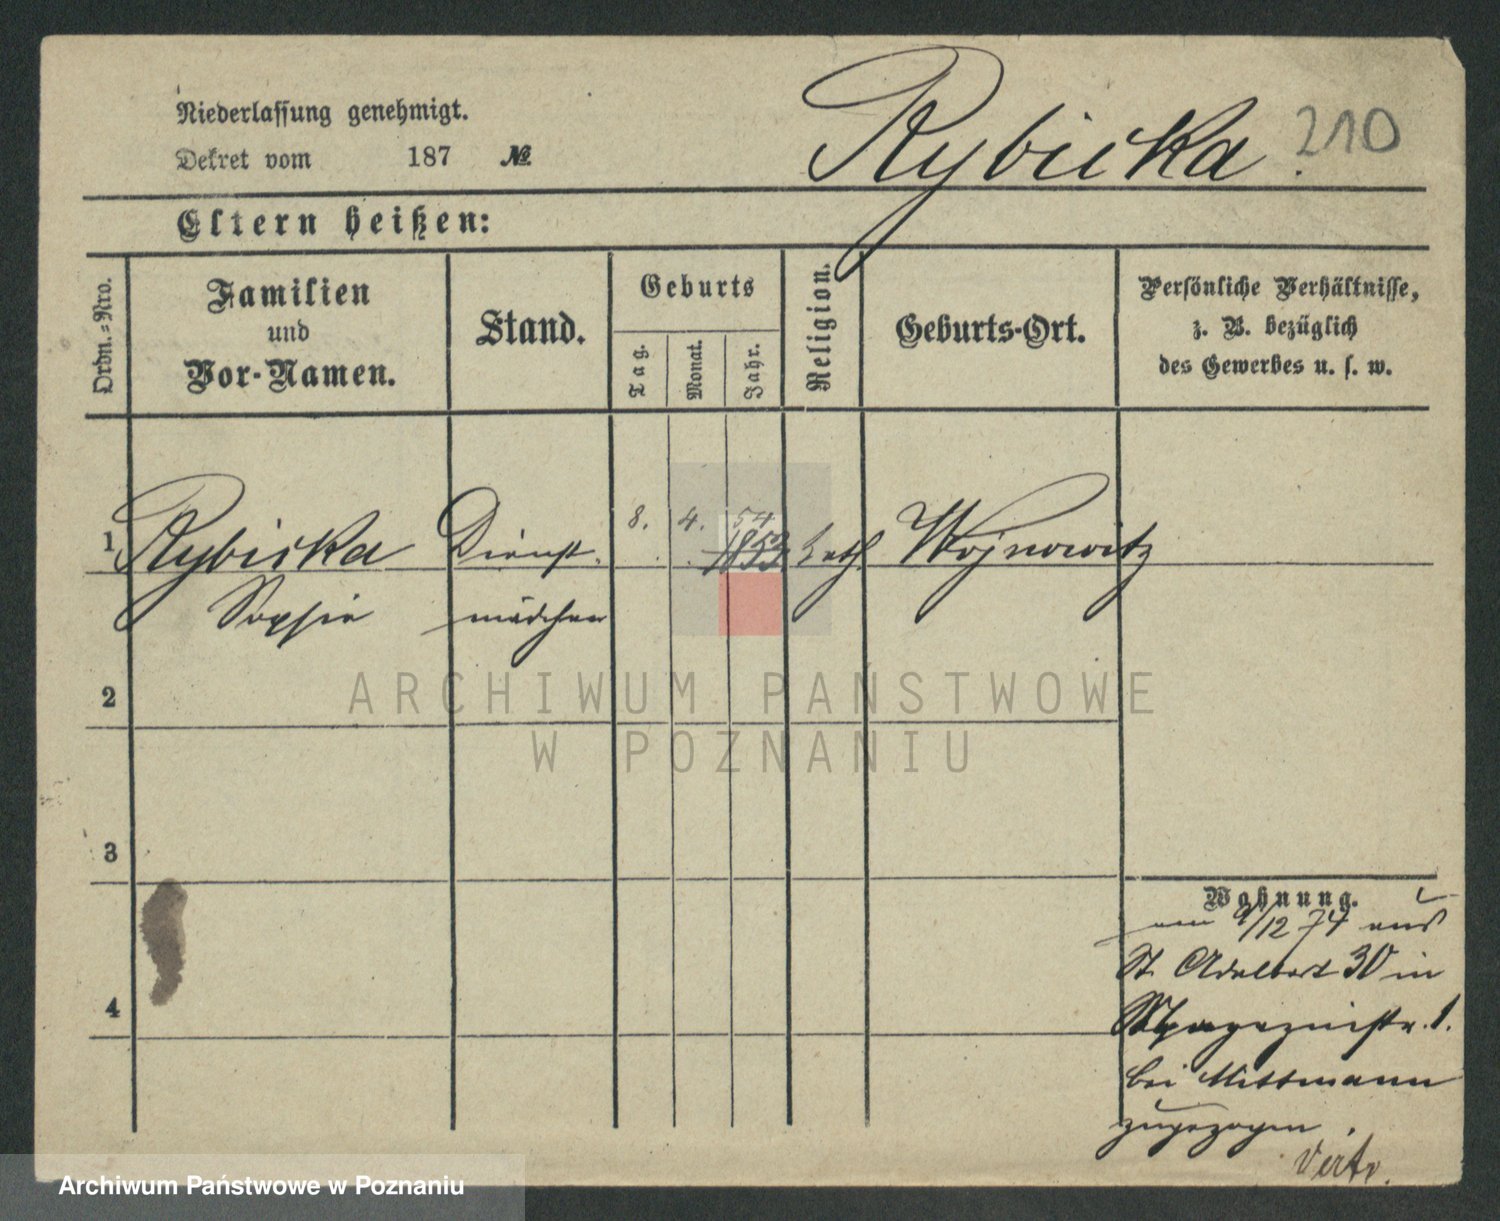 Niederlassung genehmigt.
Dekret vom 187 №
Rybicka. 210
Eltern heißen:
Ordn.=Nro.
Familien
und
Vor-Namen.
Stand.
Geburts
Tag.
Monat.
Jahr.
Religion.
Geburts-Ort.
Persönliche Verhältnisse,
z. B. bezüglich
des Gewerbes u. s. w.
54
1 Rybicka Dienst 8. 4. 1853 kath Wojnowitz
Sophie mädchen
ARCHIWUM PAŃSTWOWE
W POZNANIU
2
3
4
Wohnung.
am 9/12 74 aus
St. Adalbert 30 in
Magazinstr. 1.
bei Mittmann
zugezogen.
Archiwum Państwowe w Poznaniu